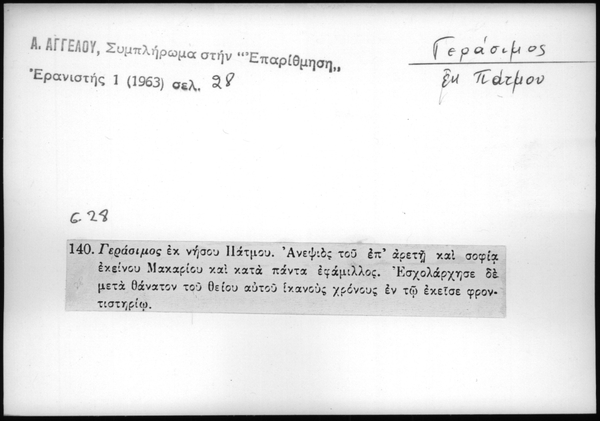 Α. ΑΓΓΕΛΟΥ, Συμπλήρωμα στήν "Ἐπαρίθμηση„
Ἐρανιστής 1 (1963) σελ. 28
Γεράσιμος
ἐκ Πάτμου
σ. 28
140. Γεράσιμος ἐκ νήσου Πάτμου. Ἀνεψιὸς τοῦ ἐπ' ἀρετῇ καὶ σοφίᾳ
ἐκείνου Μακαρίου καὶ κατὰ πάντα ἐφάμιλλος. Ἐσχολάρχησε δὲ
μετὰ θάνατον τοῦ θείου αὐτοῦ ἱκανοὺς χρόνους ἐν τῷ ἐκεῖσε φρον-
τιστηρίῳ.